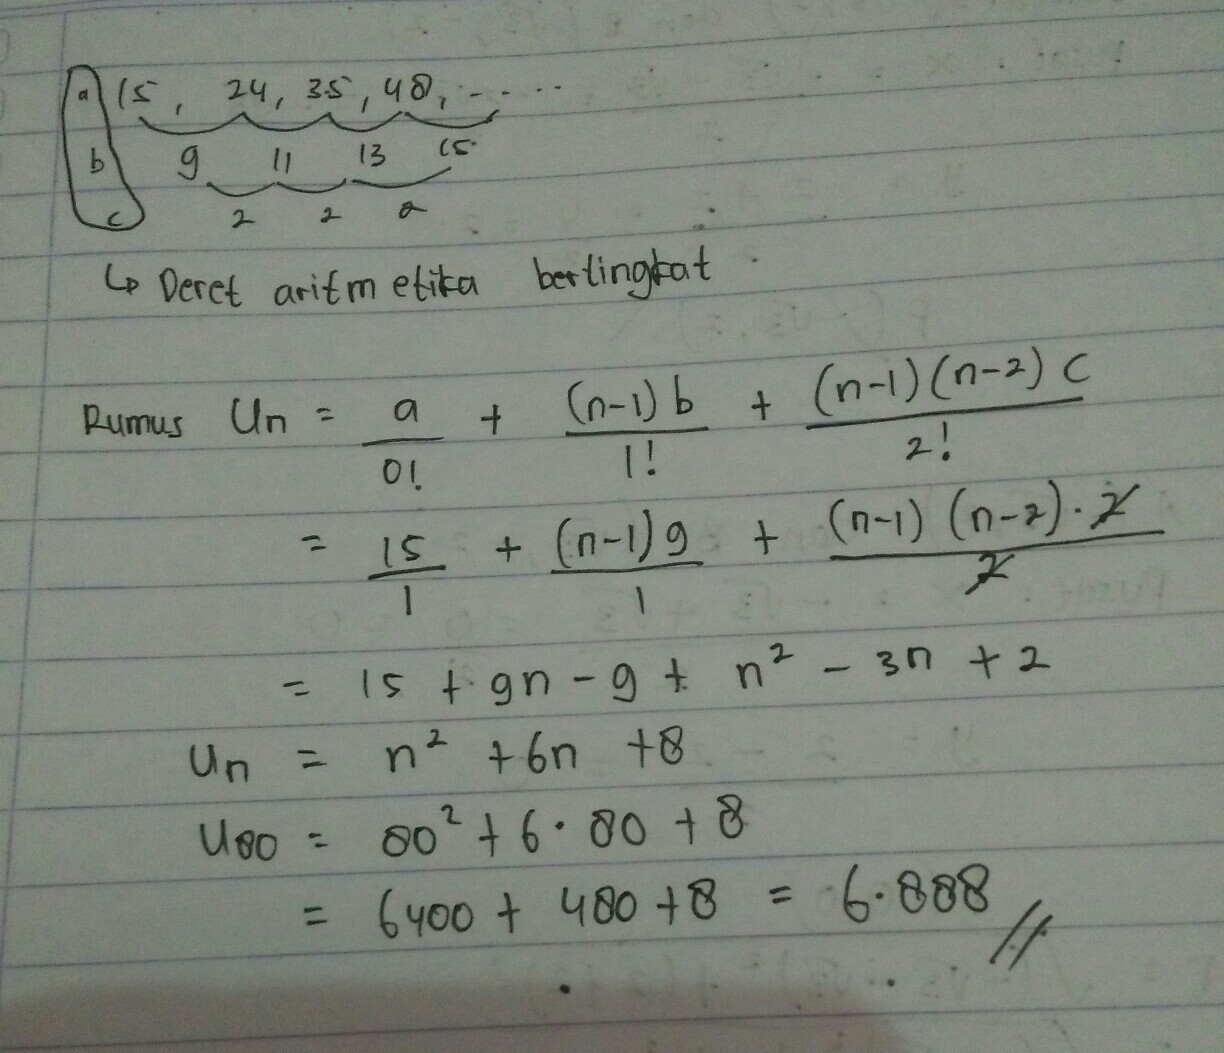 a 15, 24, 35, 48, .....
b 9 11 13 15
c 2 2 2
↳ Deret aritmetika bertingkat
Rumus Un = a/0! + (n-1) b/1! + (n-1) (n-2) c/2!
= 15/1 + (n-1) 9/1 + (n-1) (n-2) . 2/2
= 15 + 9n - 9 + n² - 3n + 2
Un = n² + 6n + 8
U80 = 80² + 6 . 80 + 8
= 6400 + 480 + 8 = 6.888 //